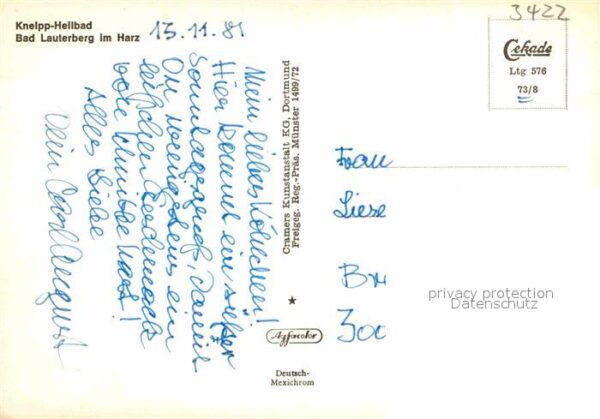 Kneipp-Heilbad
Bad Lauterberg im Harz
13.11.81
3422
Cekade
Ltg 576
73/8
Mein liebes
Hier kommt ein süßer
Sonntagsgruß, damit
Du wenigstens ein
vom
hast!
Alles Liebe
Dein Carl August
Cramers Kunstanstalt KG, Dortmund
Freigeg. Reg.-Präs. Münster 1499/72
Frau
Liese
Br
300
privacy protection
Datenschutz
Agfacolor
Deutsch-
Mexichrom